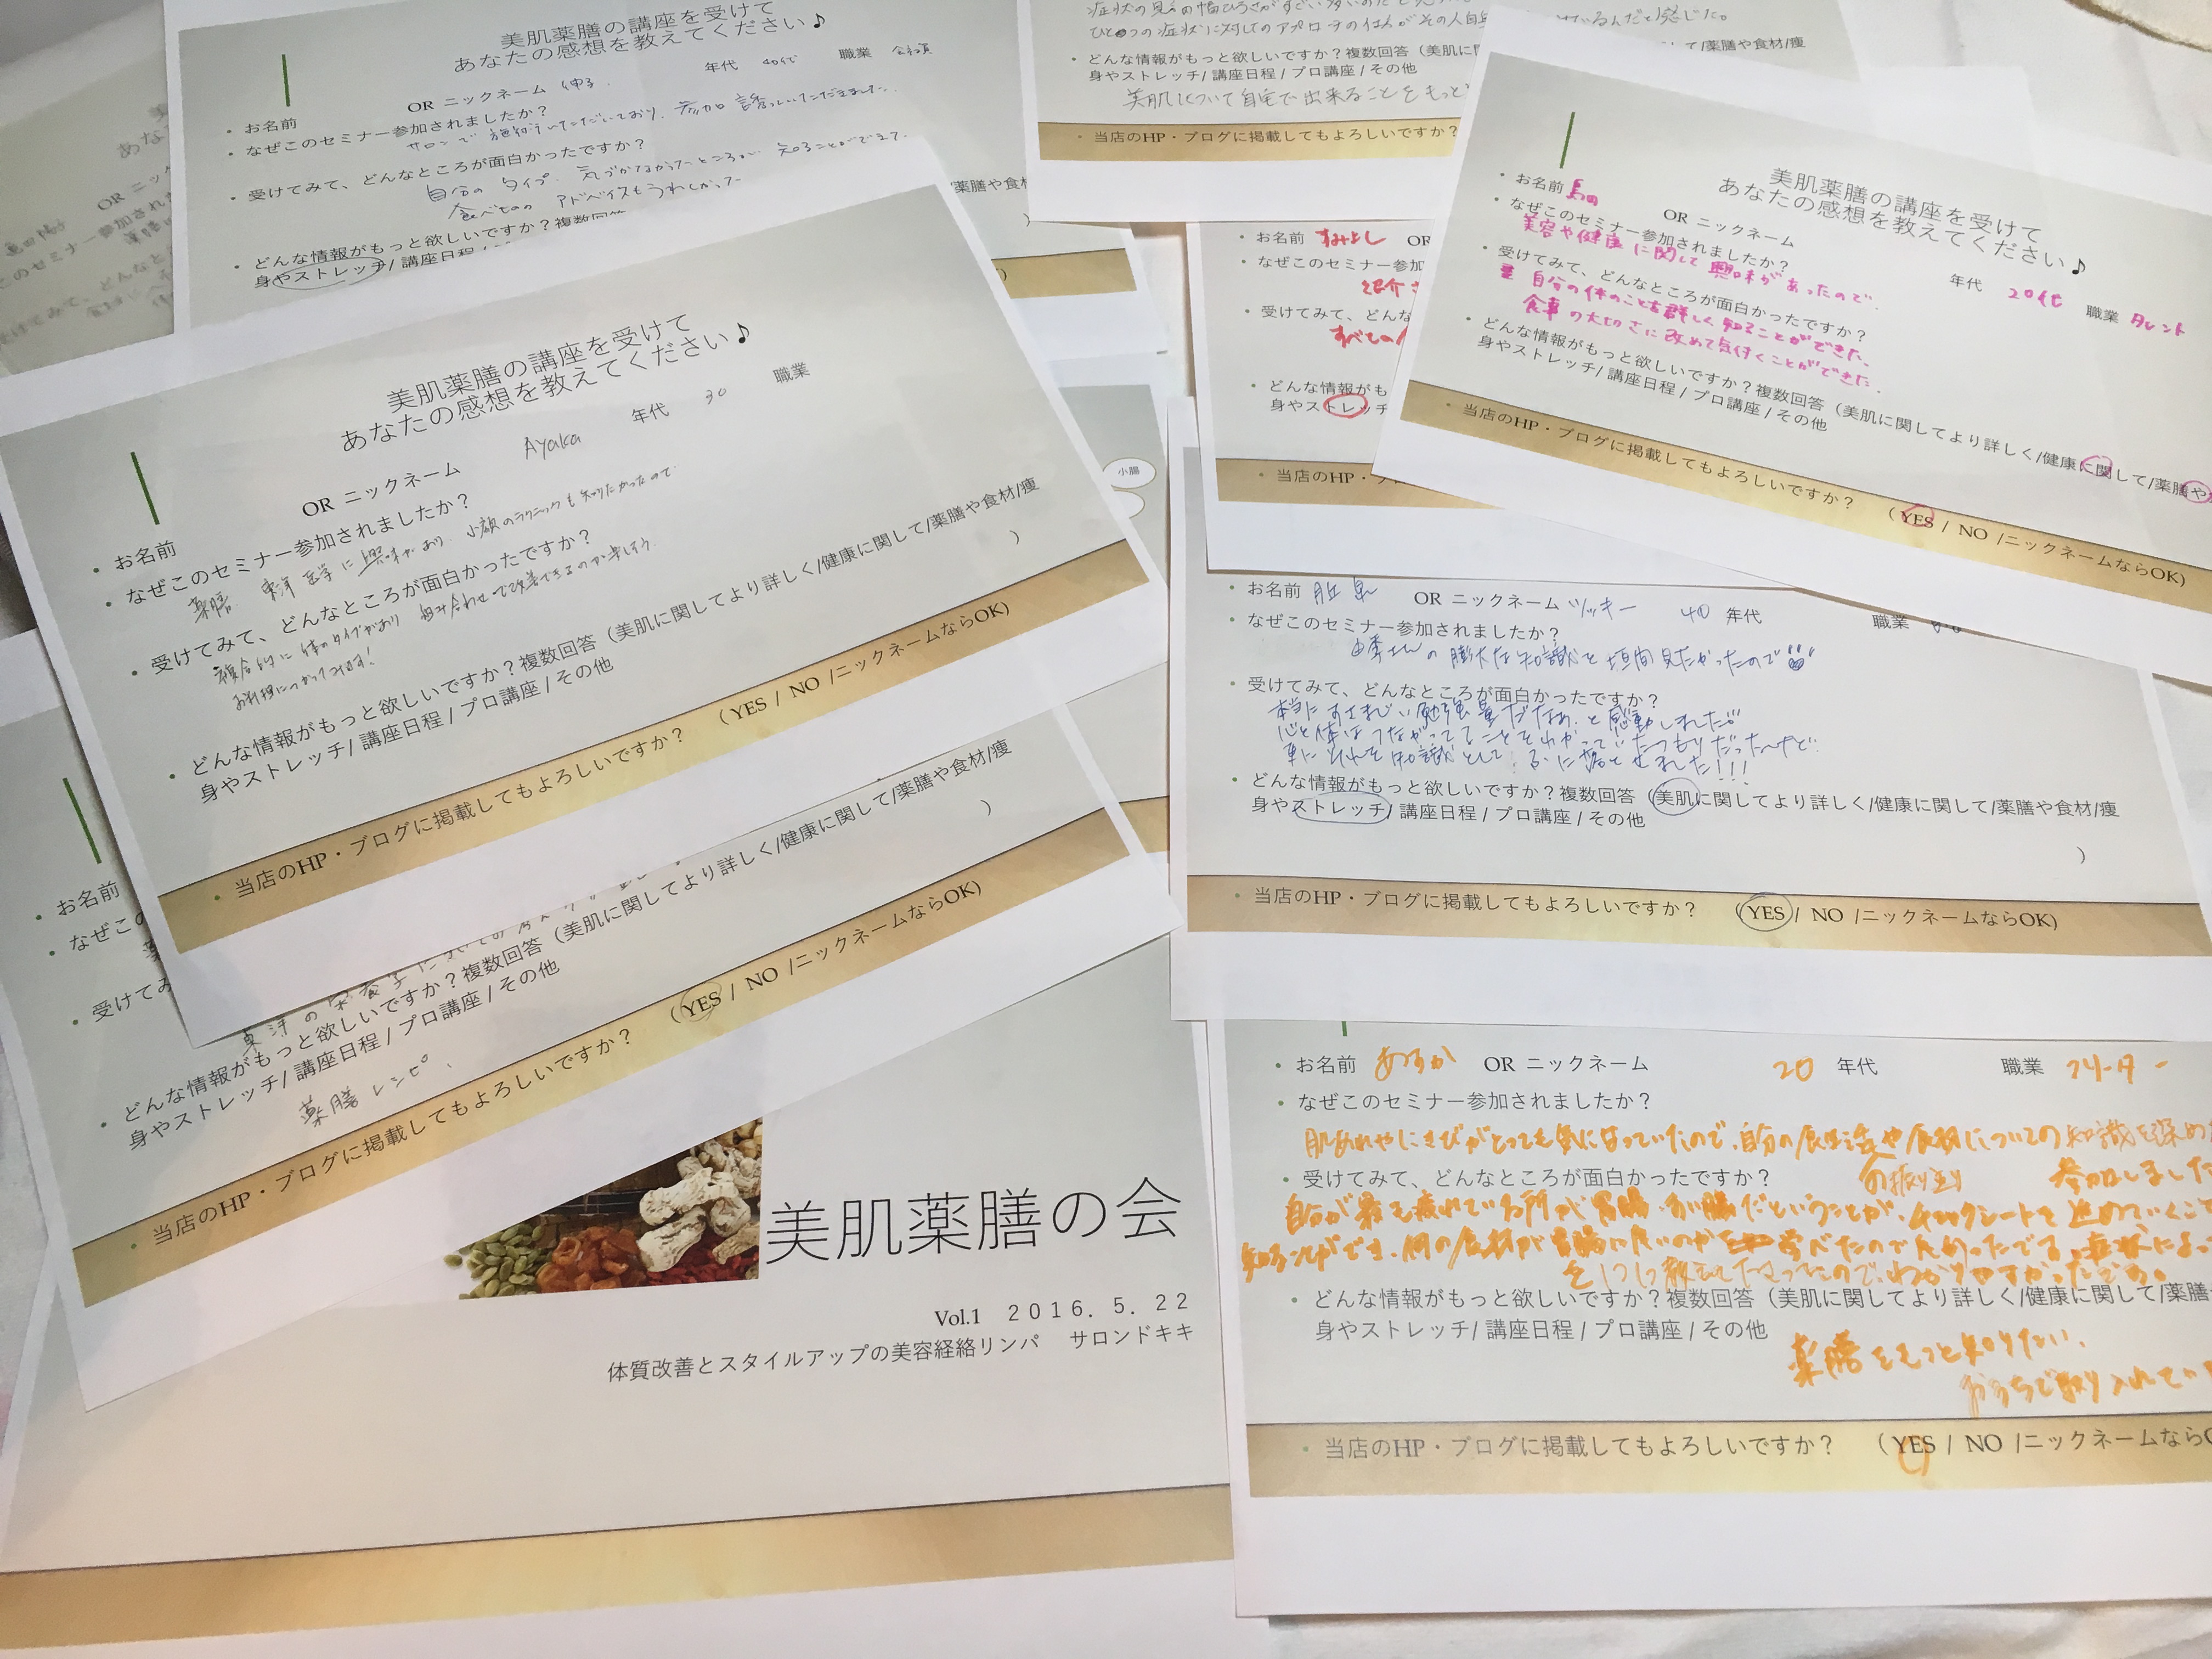 美肌薬膳の講座を受けて
あなたの感想を教えてください♪
お名前 OR ニックネーム 伸子 年代 40代 職業 会社員
なぜこのセミナー参加されましたか？
サロンで施術していただいており、参加 誘っていただきました。
受けてみて、どんなところが面白かったですか？
自分の タイプ、気づかなかったところが 知ることができて、
食べもの アドバイスもうれしかった
どんな情報がもっと欲しいですか？複数回答
身やストレッチ/ 講座日程
薬膳や食材
症状の見方の幅
ひとつの症状に対してのアプローチの仕方がその人自身
ているんだと感じた。
どんな情報がもっと欲しいですか？複数回答（美肌に関
て/薬膳や食材/痩
身やストレッチ/ 講座日程 / プロ講座 / その他
美肌について自宅で出来ることをもっと
当店のHP・ブログに掲載してもよろしいですか？
美肌薬膳の講座を受けて
あなたの感想を教えてください♪
お名前 OR ニックネーム 年代 20代 職業 タレント
なぜこのセミナー参加されましたか？
美容や健康に関して興味があったので。
受けてみて、どんなところが面白かったですか？
自分の体のことを詳しく知ることができた。
食事の大切さに改めて気付くことができた。
どんな情報がもっと欲しいですか？複数回答（美肌に関してより詳しく/健康に関して/薬膳や
身やストレッチ/ 講座日程 / プロ講座 / その他
当店のHP・ブログに掲載してもよろしいですか？ （YES / NO /ニックネームならOK)
お名前 すみよし OR
なぜこのセミナー参加
紹介
受けてみて、どんな
すべての
どんな情報がも
身やストレッチ
当店のHP・ブ
小腸
美肌薬膳の講座を受けて
あなたの感想を教えてください♪
お名前 OR ニックネーム Ayaka 年代 30 職業
なぜこのセミナー参加されましたか？
薬膳、東洋医学に興味があり、小顔のテクニックも知りたかったので
受けてみて、どんなところが面白かったですか？
複合的に体のタイプがあり 組み合わせで改善できるのが楽しそう。
お料理につかってみます！
どんな情報がもっと欲しいですか？複数回答（美肌に関してより詳しく/健康に関して/薬膳や食材/痩
身やストレッチ/ 講座日程 / プロ講座 / その他 ）
当店のHP・ブログに掲載してもよろしいですか？ （YES / NO /ニックネームならOK)
お名前 OR ニックネーム ツッキー 40 年代 職業
なぜこのセミナー参加されましたか？
さんの膨大な知識を垣間見たかったので
受けてみて、どんなところが面白かったですか？
本当にすさまじい勉強量だなぁ、と感動しました
心と体はつながってることをわかっていたつもりだったけど、
更にそれを知識として、ふに落とせました!!!
どんな情報がもっと欲しいですか？複数回答（美肌に関してより詳しく/健康に関して/薬膳や食材/痩
身やストレッチ/ 講座日程 / プロ講座 / その他
）
当店のHP・ブログに掲載してもよろしいですか？ （YES / NO /ニックネームならOK)
お名前
なぜこの
受けてみ
東洋の栄養学
どんな情報がもっと欲しいですか？複数回答（美肌に関してより詳しく/健康に関して/薬膳や食材/痩
身やストレッチ/ 講座日程 / プロ講座 / その他 ）
薬膳レシピ、
当店のHP・ブログに掲載してもよろしいですか？ （YES / NO /ニックネームならOK)
美肌薬膳の会
Vol.1 ２０１６．５．２２
体質改善とスタイルアップの美容経絡リンパ サロンドキキ
お名前 あすか OR ニックネーム 20 年代 職業
なぜこのセミナー参加されましたか？
肌あれやにきびがとっても気になっていたので、自分の食生活や食材についての知識を深め
の振り返り 参加しました
受けてみて、どんなところが面白かったですか？
自分が最も疲れている所が胃腸だということが、チェックシートを進めていくことで
知ることができ、何の食材が胃腸に良いのか学べたので良かったです。症状によって
教えて下さったので、わかりやすかったです。
どんな情報がもっと欲しいですか？複数回答（美肌に関してより詳しく/健康に関して/薬膳
身やストレッチ/ 講座日程 / プロ講座 / その他
薬膳をもっと知りたい。
おうちで取り入れてい
当店のHP・ブログに掲載してもよろしいですか？ （YES / NO /ニックネームなら